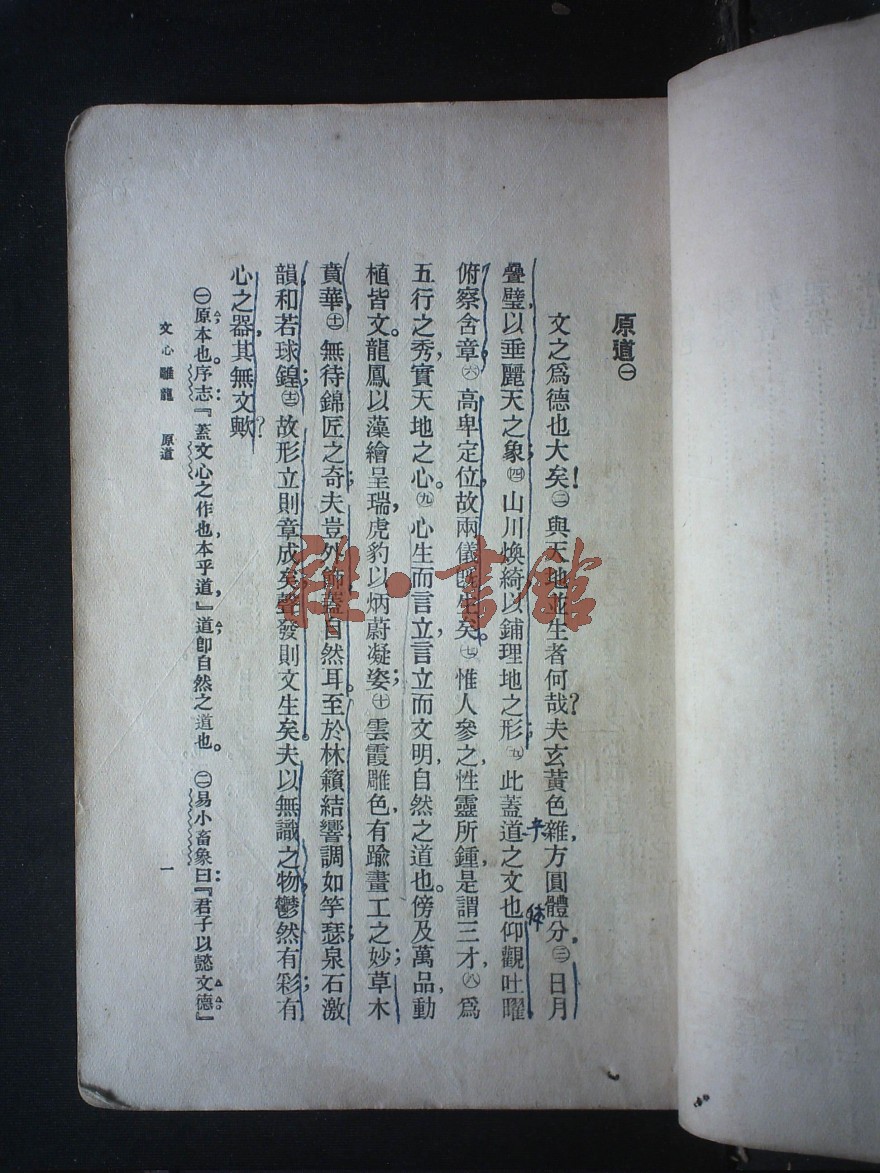 原道㊀
文之爲德也大矣！㊁與天地並生者何哉？夫玄黃色雜，方圓體分，㊂日月
疊璧，以垂麗天之象；㊃山川煥綺，以鋪理地之形；㊄此蓋道之文也。仰觀吐曜，
俯察含章，㊅高卑定位，故兩儀旣生矣。㊆惟人參之，性靈所鍾，是謂三才，㊇爲
五行之秀，實天地之心。㊈心生而言立，言立而文明，自然之道也。傍及萬品，動
植皆文。龍鳳以藻繪呈瑞，虎豹以炳蔚凝姿；㊉雲霞雕色，有踰畫工之妙；草木
賁華，㊉一無待錦匠之奇：夫豈外飾，蓋自然耳。至於林籟結響，調如竽瑟；泉石激
韻，和若球鍠；㊉二故形立則章成矣，聲發則文生矣。夫以無識之物，鬱然有彩；有
心之器，其無文歟？
㊀原，本也。序志：『蓋文心之作也，本乎道，』道卽自然之道也。 ㊁易小畜象曰：『君子以懿文德』
文心雕龍 原道
一
雜·書館
体